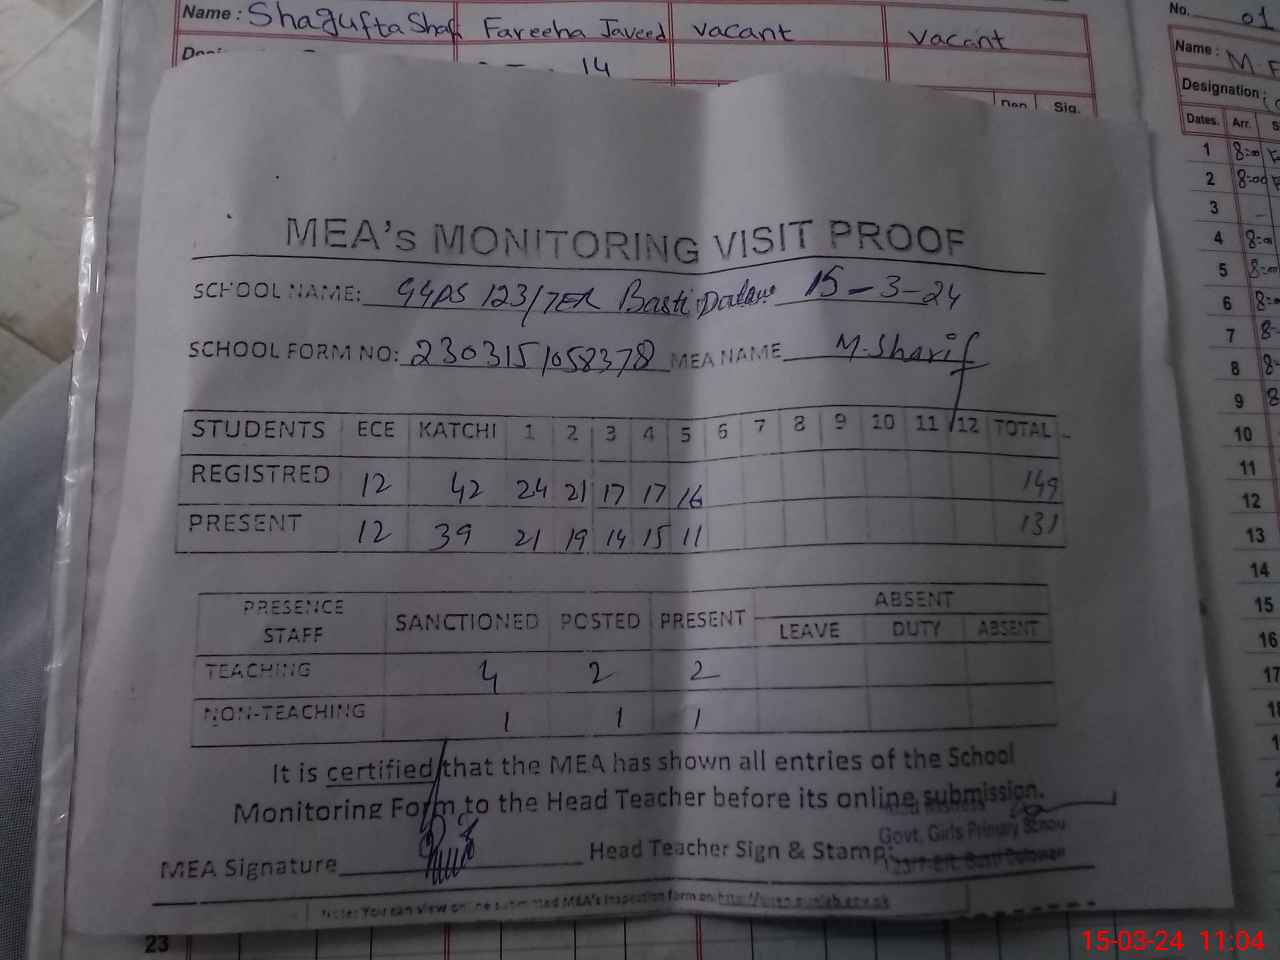 Name : Shagufta Shafi Fareeha Javeed vacant vacant
14
Dep. Sig.
No. 01
Name : M.
Designation :
Dates. Arr.
1 8:00
2 8:00
3 -
4 8:00
5 8:00
6 8:
7 8:
8 8:
9 8
10
11
12
13
14
15
16
17
MEA's MONITORING VISIT PROOF
SCHOOL NAME: GGPS 123/7ER Basti 15-3-24
SCHOOL FORM NO: 230315/058378 MEA NAME M.Sharif
STUDENTS ECE KATCHI 1 2 3 4 5 6 7 8 9 10 11 12 TOTAL
REGISTRED 12 42 24 21 17 17 16 149
PRESENT 12 39 21 19 14 15 11 131
PRESENCE STAFF SANCTIONED POSTED PRESENT ABSENT
LEAVE DUTY ABSENT
TEACHING 4 2 2
NON-TEACHING 1 1 1
It is certified that the MEA has shown all entries of the School
Monitoring Form to the Head Teacher before its online submission.
MEA Signature Head Teacher Sign & Stamp:
Govt. Girls Primary School
Note: You can view online submitted MEA's inspection form on
23
15-03-24 11:04